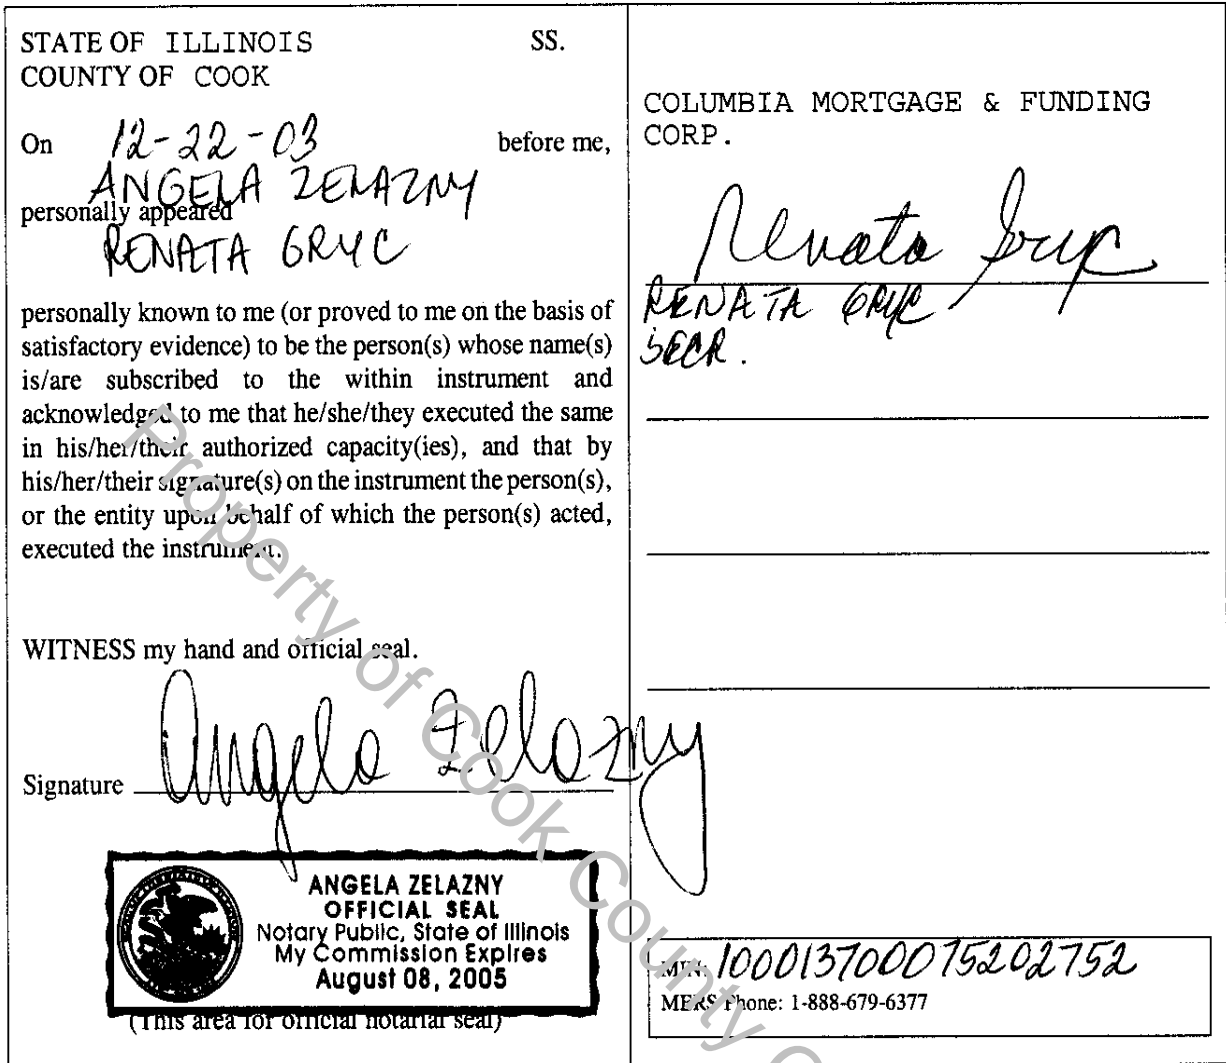 STATE OF ILLINOIS SS.
COUNTY OF COOK
On 12-22-03 before me,
ANGELA ZELAZNY
personally appeared
RENATA GRYC
personally known to me (or proved to me on the basis of
satisfactory evidence) to be the person(s) whose name(s)
is/are subscribed to the within instrument and
acknowledged to me that he/she/they executed the same
in his/her/their authorized capacity(ies), and that by
his/her/their signature(s) on the instrument the person(s),
or the entity upon behalf of which the person(s) acted,
executed the instrument.
WITNESS my hand and official seal.
Signature Angela Zelazny
ANGELA ZELAZNY
OFFICIAL SEAL
Notary Public, State of Illinois
My Commission Expires
August 08, 2005
(This area for official notarial seal)
COLUMBIA MORTGAGE & FUNDING
CORP.
Renata Gryc
RENATA GRYC
SECR.
MIN: 100013700075202752
MERS Phone: 1-888-679-6377
Property of Cook County